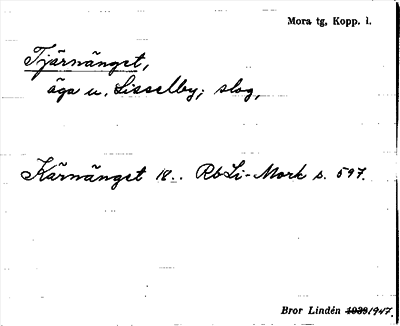 Mora tg, Kopp. l.
Tjärnänget,
äga u. Lisselby; slog,
Kärnänget 18.. RbLi-Mork s. 597.
Bror Lindén 1939/1947.